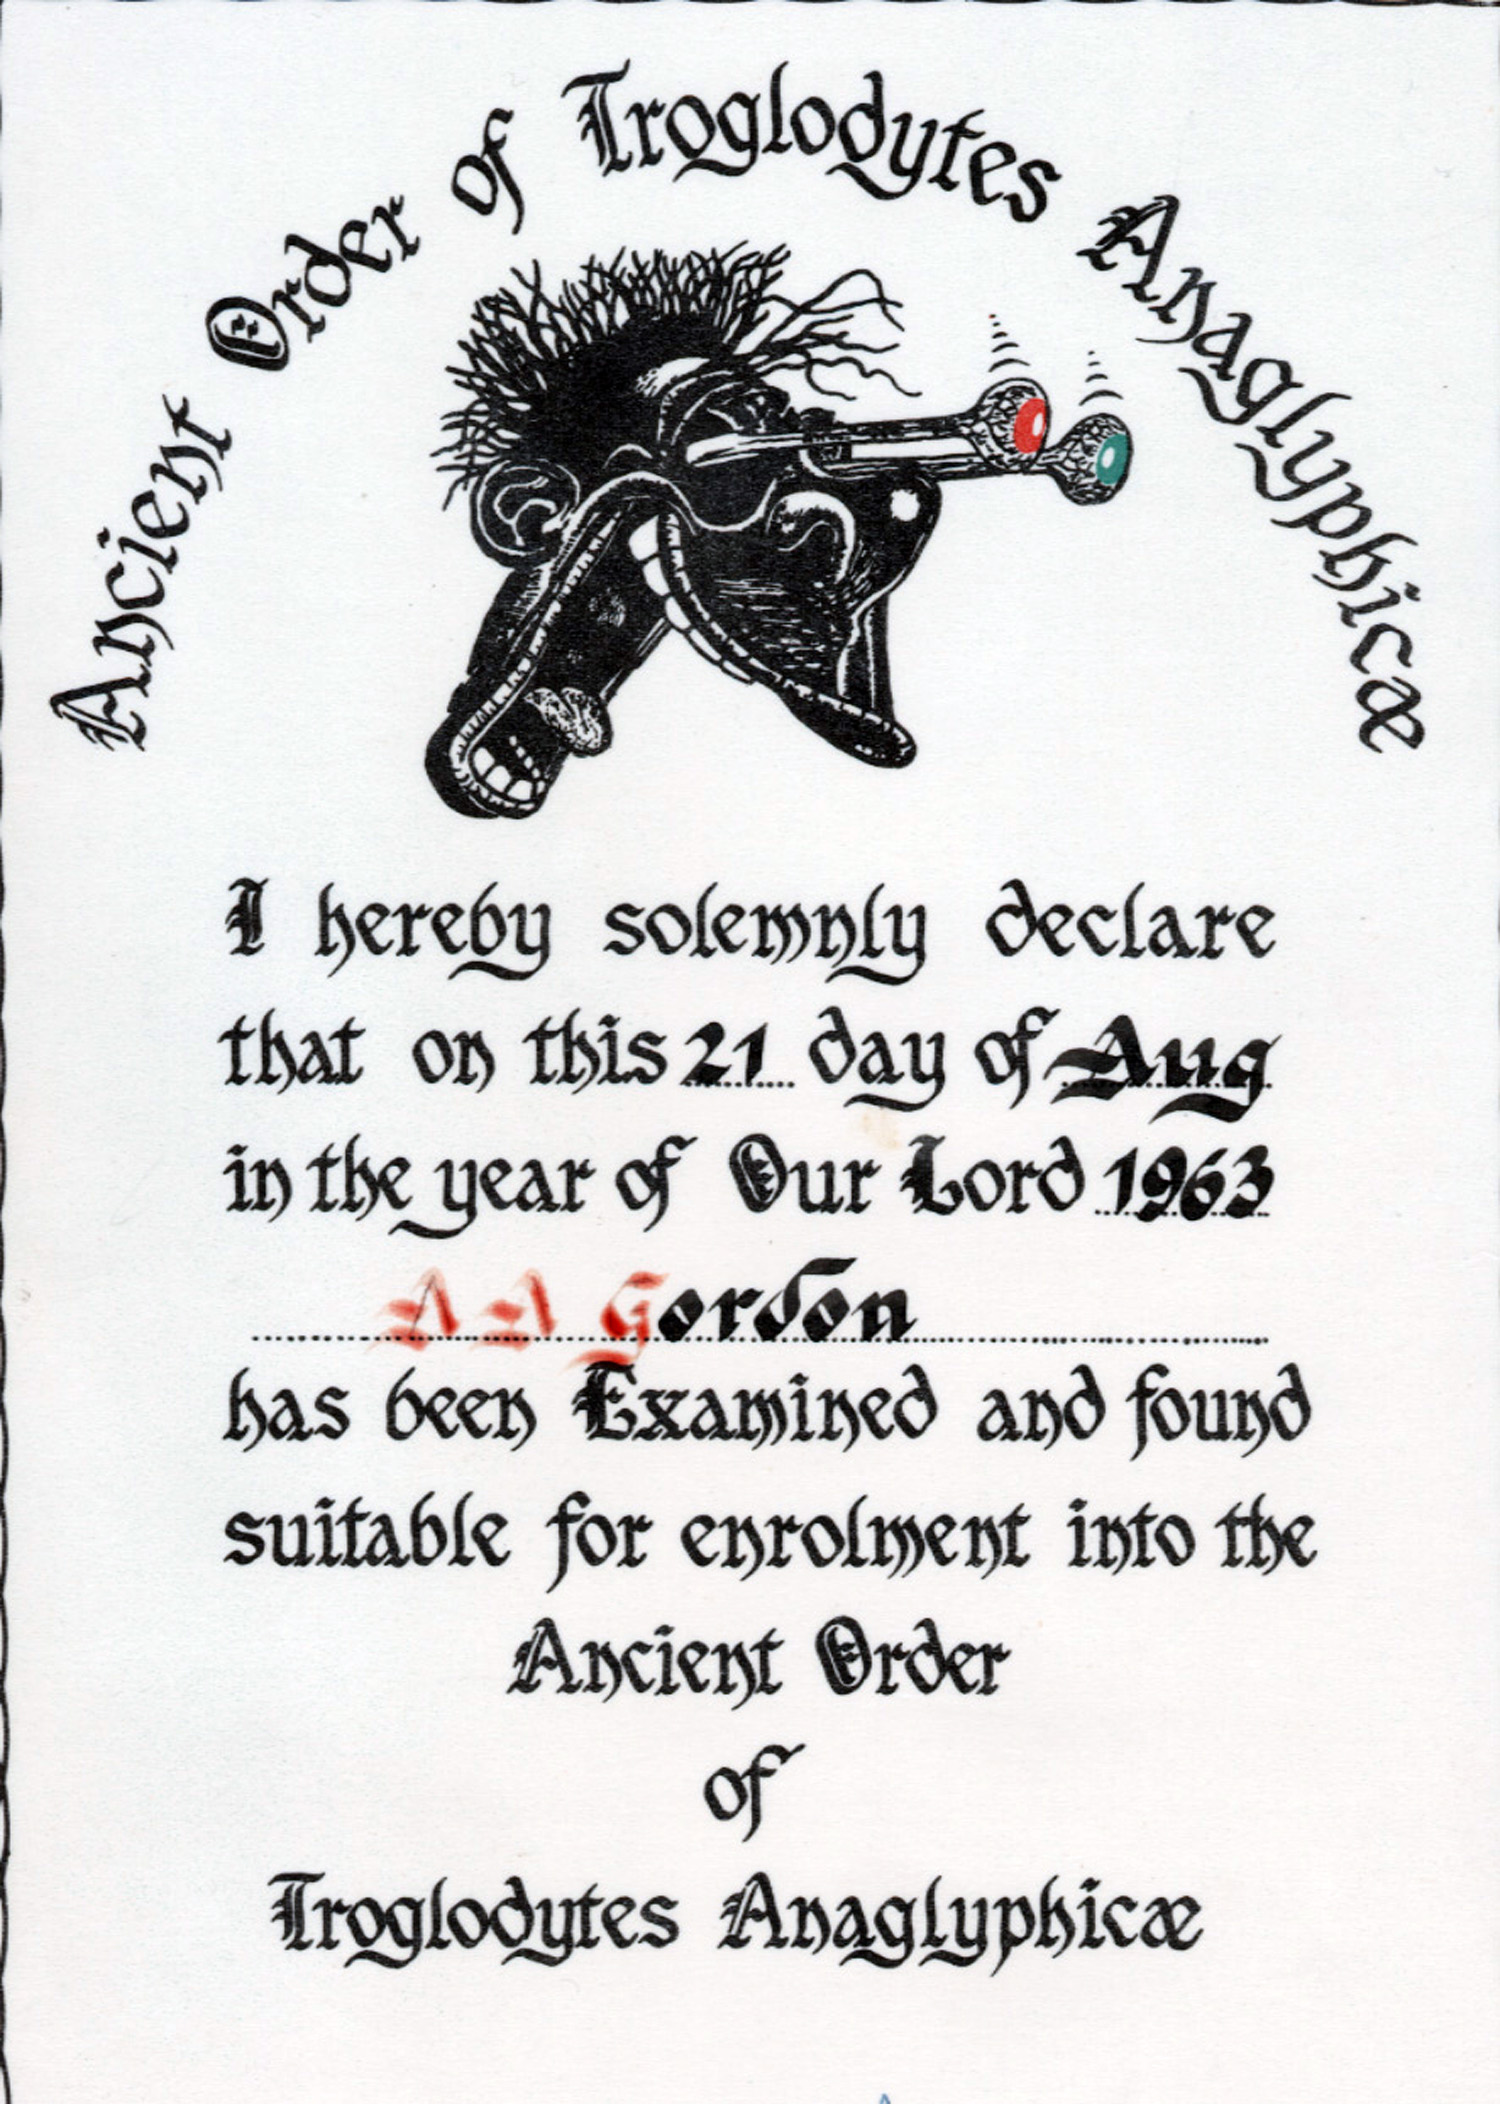 Ancient Order of Troglodytes Anaglyphicæ
I hereby solemnly declare
that on this 21 day of Aug
in the year of Our Lord 1963
A A Gordon
has been Examined and found
suitable for enrolment into the
Ancient Order
of
Troglodytes Anaglyphicæ